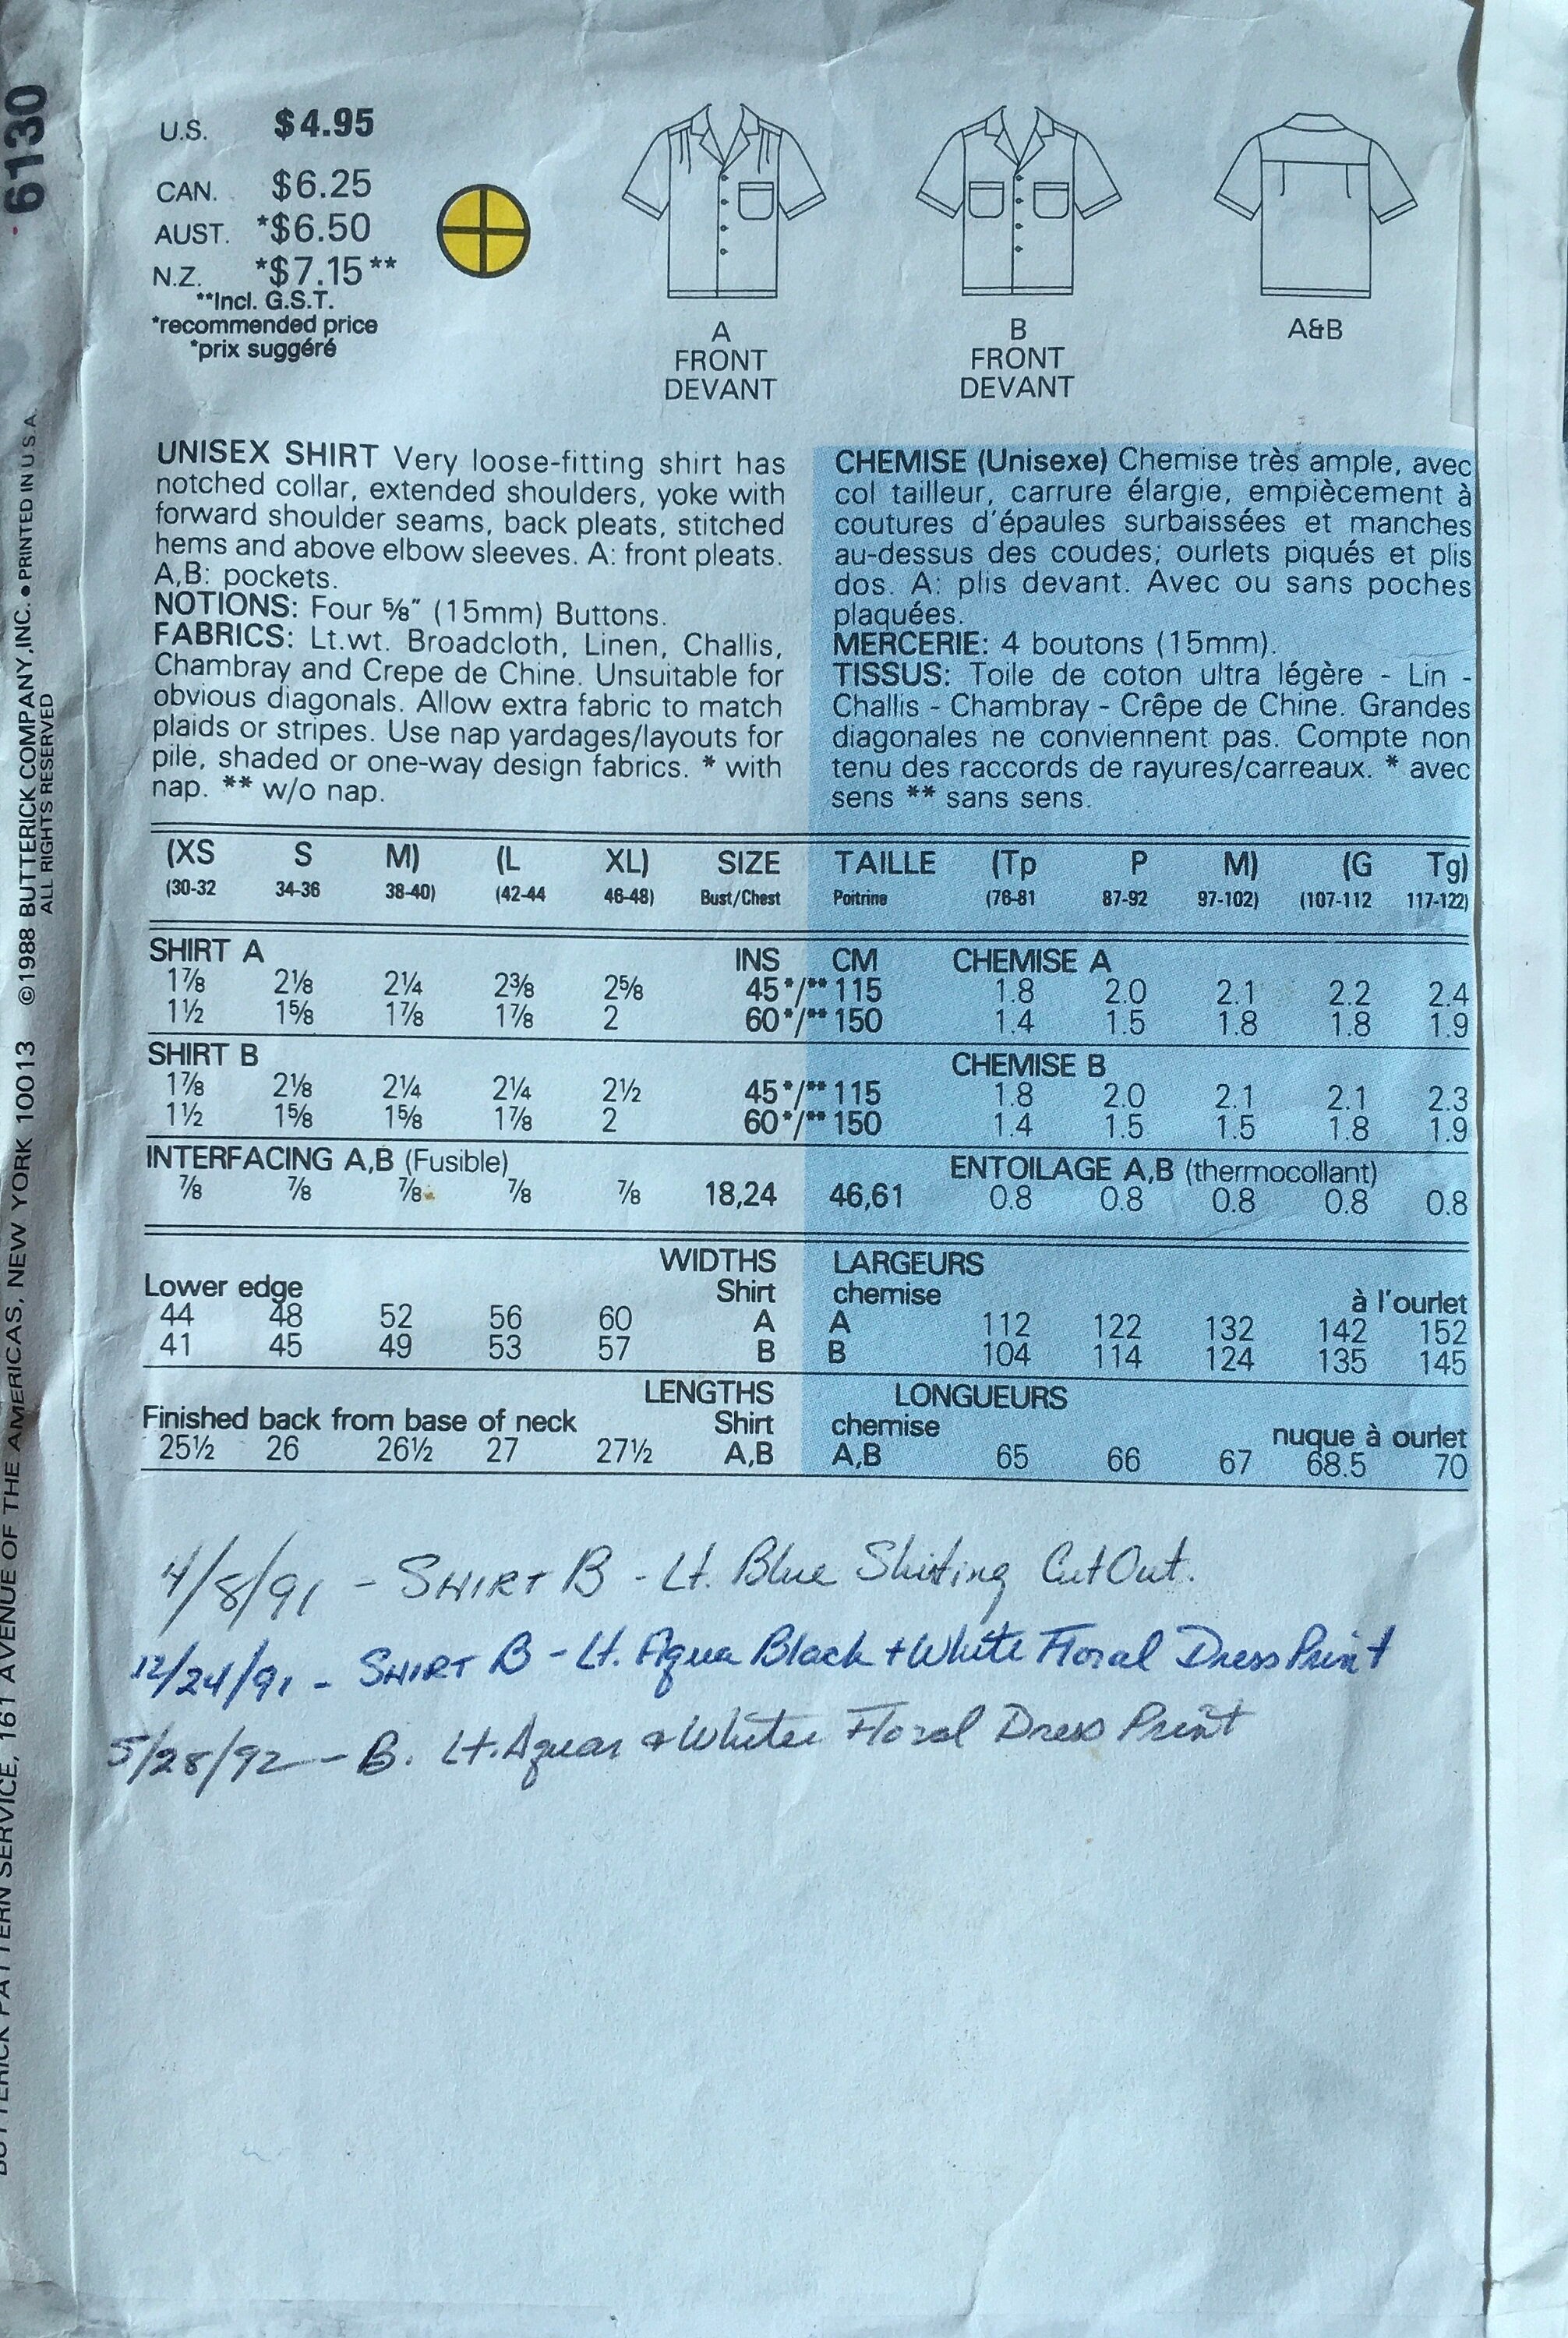 6130
©1988 BUTTERICK COMPANY, INC. • PRINTED IN U.S.A.
ALL RIGHTS RESERVED
BUTTERICK PATTERN SERVICE, 161 AVENUE OF THE AMERICAS, NEW YORK, NEW YORK 10013
U.S. $4.95
CAN. $6.25
AUST. *$6.50
N.Z. *$7.15**
**Incl. G.S.T.
*recommended price
*prix suggéré
A
FRONT
DEVANT
B
FRONT
DEVANT
A&B
UNISEX SHIRT Very loose-fitting shirt has
notched collar, extended shoulders, yoke with
forward shoulder seams, back pleats, stitched
hems and above elbow sleeves. A: front pleats.
A,B: pockets.
NOTIONS: Four ⅝" (15mm) Buttons.
FABRICS: Lt.wt. Broadcloth, Linen, Challis,
Chambray and Crepe de Chine. Unsuitable for
obvious diagonals. Allow extra fabric to match
plaids or stripes. Use nap yardages/layouts for
pile, shaded or one-way design fabrics. * with
nap. ** w/o nap.
CHEMISE (Unisexe) Chemise très ample, avec
col tailleur, carrure élargie, empiècement à
coutures d'épaules surbaissées et manches
au-dessus des coudes; ourlets piqués et plis
dos. A: plis devant. Avec ou sans poches
plaquées.
MERCERIE: 4 boutons (15mm).
TISSUS: Toile de coton ultra légère - Lin -
Challis - Chambray - Crêpe de Chine. Grandes
diagonales ne conviennent pas. Compte non
tenu des raccords de rayures/carreaux. * avec
sens ** sans sens.
(XS S M) (L XL) SIZE TAILLE (Tp P M) (G Tg)
(30-32 34-36 38-40) (42-44 46-48) Bust/Chest Poitrine (76-81 87-92 97-102) (107-112 117-122)
SHIRT A INS CM CHEMISE A
1⅞ 2⅛ 2¼ 2⅜ 2⅝ 45*/**115 1.8 2.0 2.1 2.2 2.4
1½ 1⅝ 1⅞ 1⅞ 2 60*/**150 1.4 1.5 1.8 1.8 1.9
SHIRT B CHEMISE B
1⅞ 2⅛ 2¼ 2¼ 2½ 45*/**115 1.8 2.0 2.1 2.1 2.3
1½ 1⅝ 1⅝ 1⅞ 2 60*/**150 1.4 1.5 1.5 1.8 1.9
INTERFACING A,B (Fusible) ENTOILAGE A,B (thermocollant)
⅞ ⅞ ⅞ ⅞ ⅞ 18,24 46,61 0.8 0.8 0.8 0.8 0.8
WIDTHS LARGEURS
Lower edge Shirt chemise à l'ourlet
44 48 52 56 60 A A 112 122 132 142 152
41 45 49 53 57 B B 104 114 124 135 145
LENGTHS LONGUEURS
Finished back from base of neck Shirt chemise nuque à ourlet
25½ 26 26½ 27 27½ A,B A,B 65 66 67 68.5 70
4/8/91 - SHIRT B - Lt. Blue Shirting Cut Out.
12/24/91 - SHIRT B - Lt. Aqua Black + White Floral Dress Print
5/28/92 - B. Lt. Aquar & White Floral Dress Print